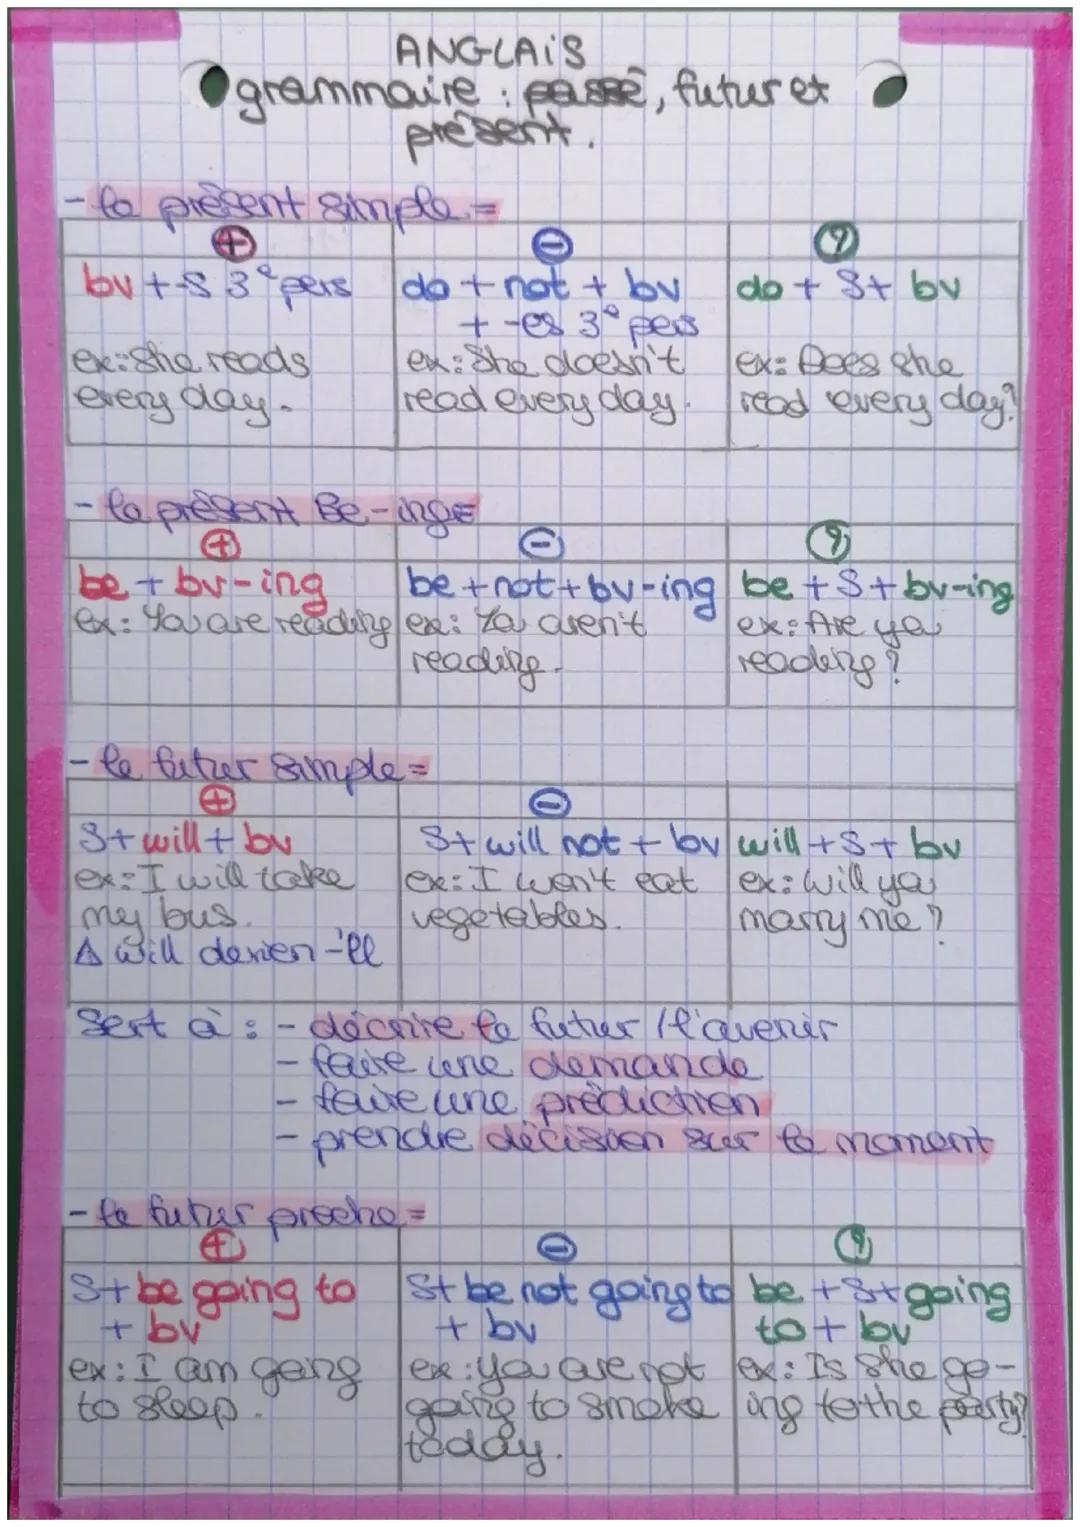 ANGLAIS
grammaire : passé, futur et
présent.
- le présent simple =
+ - ?
bv + -s 3e pers
do + not + bv
+ -es 3e pers
do + S + bv
ex: She reads
every day.
ex: She doesn't
read every day.
ex: Does she
read every day?
- le présent Be-ing =
+ - ?
be + bv-ing
be + not + bv-ing
be + S + bv-ing
ex: You are reading
ex: You aren't
reading.
ex: Are you
reading ?
- le futur simple =
+ -
S + will + bv
S + will not + bv
will + S + bv
ex: I will take
my bus.
Δ will devien -'ll
ex: I won't eat
vegetables.
ex: Will you
marry me ?
Sert à : - décrire le futur / l'avenir
- faire une demande
- faire une prédiction
- prendre décision sur le moment
- le futur proche =
+ - ?
S + be going to
+ bv
S + be not going to
+ bv
be + S + going
to + bv
ex: I am going
to sleep.
ex: you are not
going to smoke
today.
ex: Is She go-
ing to the party?